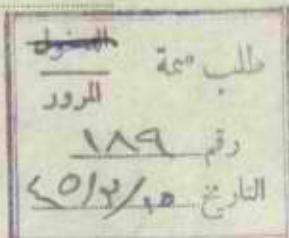 طلب سمة
الدخول
المرور
رقم ١٨٩
التاريخ ١٥/٣/٤٥